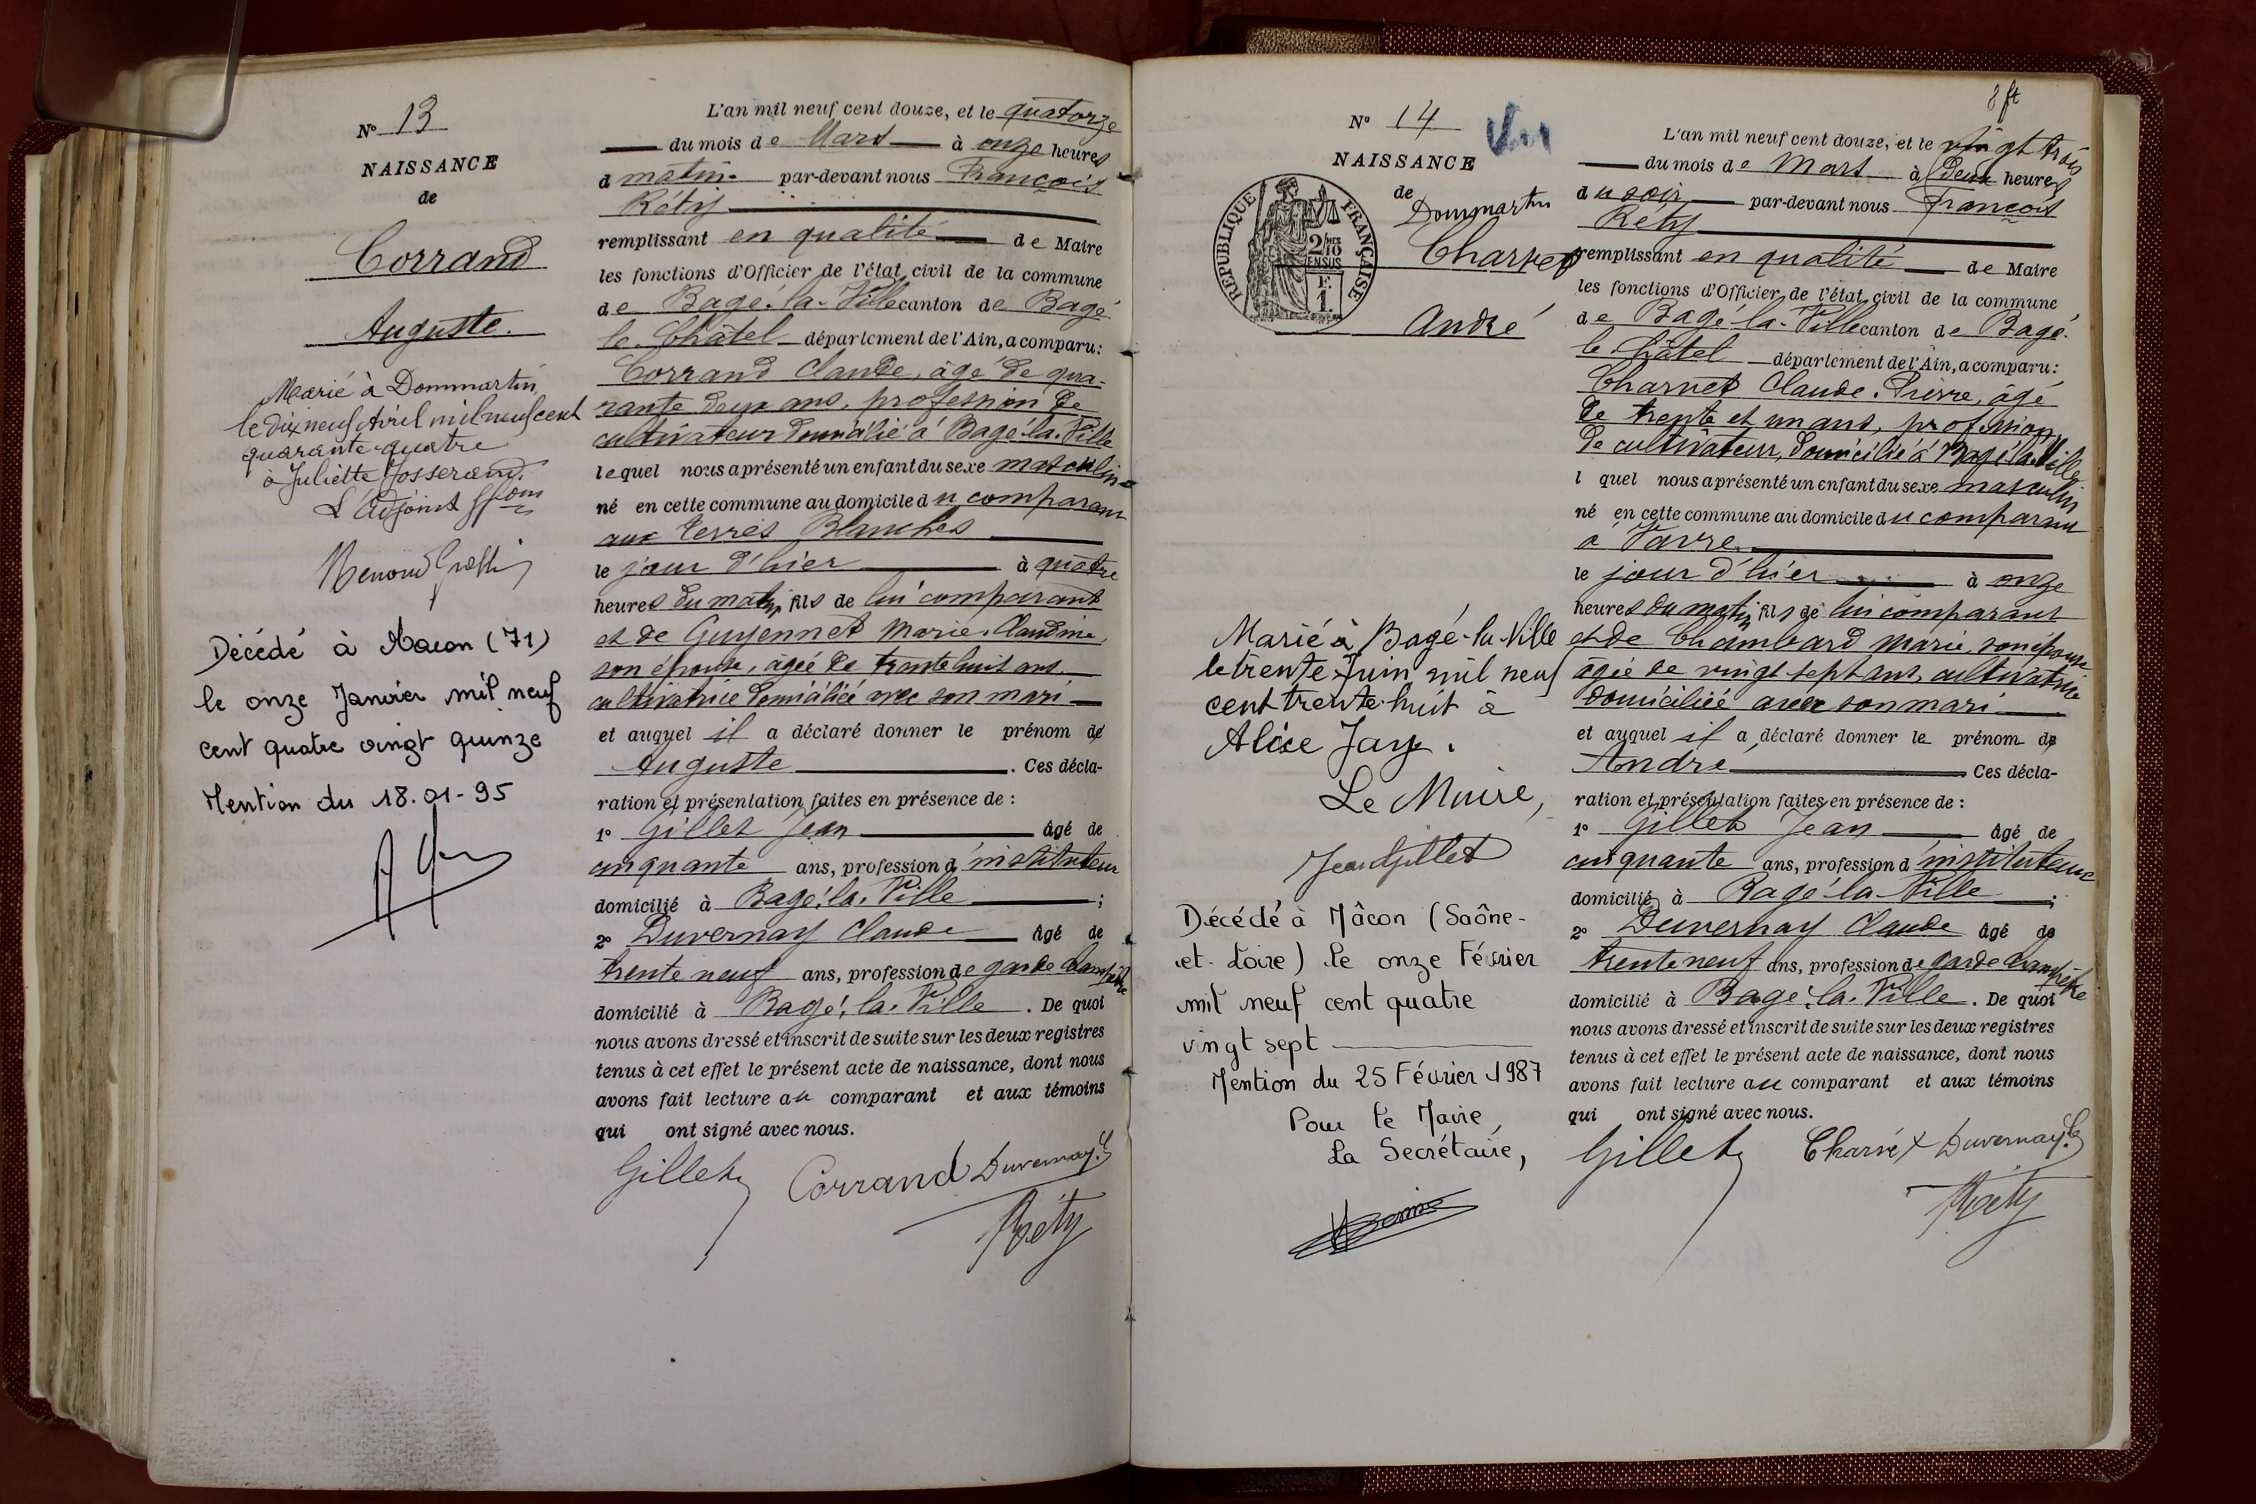 N° 13
NAISSANCE
de
Corrand
Auguste.
Marié à Dommartin
le dix neuf Avril mil neuf cent
quarante-quatre
à Juliette Josserand.
L'Adjoint ff ons
Décédé à Macon (71)
le onze Janvier mil neuf
cent quatre vingt quinze
Mention du 18.01-95
L'an mil neuf cent douze, et le quatorze
du mois de Mars à onze heures
d matin par-devant nous François
Réty
remplissant en qualité de Maire
les fonctions d'Officier de l'état civil de la commune
de Bagé-la-Ville canton de Bagé
le Châtel département de l'Ain, a comparu:
Corrand Claude, âgé de qua-
rante deux ans, profession de
cultivateur domicilié à Bagé-la-Ville
lequel nous a présenté un enfant du sexe masculin
né en cette commune au domicile du comparant
aux terres Blanches
le jour d'hier à quatre
heures du matin fils de lui comparant
et de Guyennet Marie-Claudine,
son épouse, âgée de trente huit ans
cultivatrice domiciliée avec son mari
et auquel il a déclaré donner le prénom de
Auguste. Ces décla-
ration et présentation faites en présence de :
1° Gillet Jean âgé de
cinquante ans, profession d'instituteur
domicilié à Bagé-la-Ville ;
2° Duvernay Claude âgé de
trente neuf ans, profession de garde champêtre
domicilié à Bagé-la-Ville. De quoi
nous avons dressé et inscrit de suite sur les deux registres
tenus à cet effet le présent acte de naissance, dont nous
avons fait lecture au comparant et aux témoins
qui ont signé avec nous.
Gillet Corrand Duvernay C
Réty
8 ft
N° 14
Vu
NAISSANCE
de
Dommartin
Charvet
André
RÉPUBLIQUE FRANÇAISE
2/10
EN SUS
F.
1.
Marié à Bagé-la-Ville
le trente Juin mil neuf
cent trente-huit à
Alice Jay.
Le Maire,
Jean Gillet
Décédé à Mâcon (Saône-
et-Loire) le onze Février
mil neuf cent quatre
vingt sept
Mention du 25 Février 1987
Pour le Maire,
La Secrétaire,
L'an mil neuf cent douze, et le vingt trois
du mois de Mars à deux heures
du soir par-devant nous François
Réty
remplissant en qualité de Maire
les fonctions d'Officier de l'état civil de la commune
de Bagé-la-Ville canton de Bagé-
le Châtel département de l'Ain, a comparu:
Charvet Claude-Pierre, âgé
de trente et un ans, profession
de cultivateur, domicilié à Bagé-la-Ville
l quel nous a présenté un enfant du sexe masculin
né en cette commune au domicile du comparant
à Vavre
le jour d'hier à onze
heures du matin fils de lui comparant
et de Chambard Marie, son épouse
âgée de vingt sept ans, cultivatrice
domiciliée avec son mari
et auquel il a déclaré donner le prénom de
André Ces décla-
ration et présentation faites en présence de :
1° Gillet Jean âgé de
cinquante ans, profession d'instituteur
domicilié à Bagé-la-Ville ;
2° Duvernay Claude âgé de
trente neuf ans, profession de garde champêtre
domicilié à Bagé-la-Ville. De quoi
nous avons dressé et inscrit de suite sur les deux registres
tenus à cet effet le présent acte de naissance, dont nous
avons fait lecture au comparant et aux témoins
qui ont signé avec nous.
Gillet Charvet Duvernay C
Réty